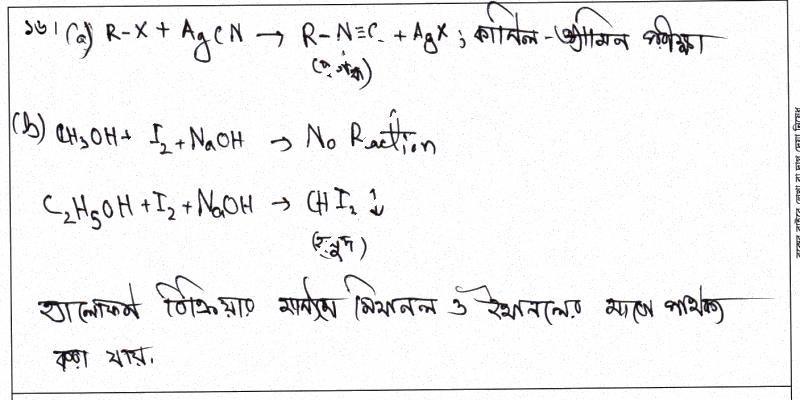 ১৬। (a) R-X + AgCN → R-N≡C + AgX ; কার্বিল-অ্যামিন পরীক্ষা
(b) CH₃OH + I₂ + NaOH → No Reaction
C₂H₅OH + I₂ + NaOH → CHI₂ ↓
(হলুদ)
হ্যালোফর্ম বিক্রিয়ার মাধ্যমে মিথানল ও ইথানলের মাঝে পার্থক্য
করা যায়.